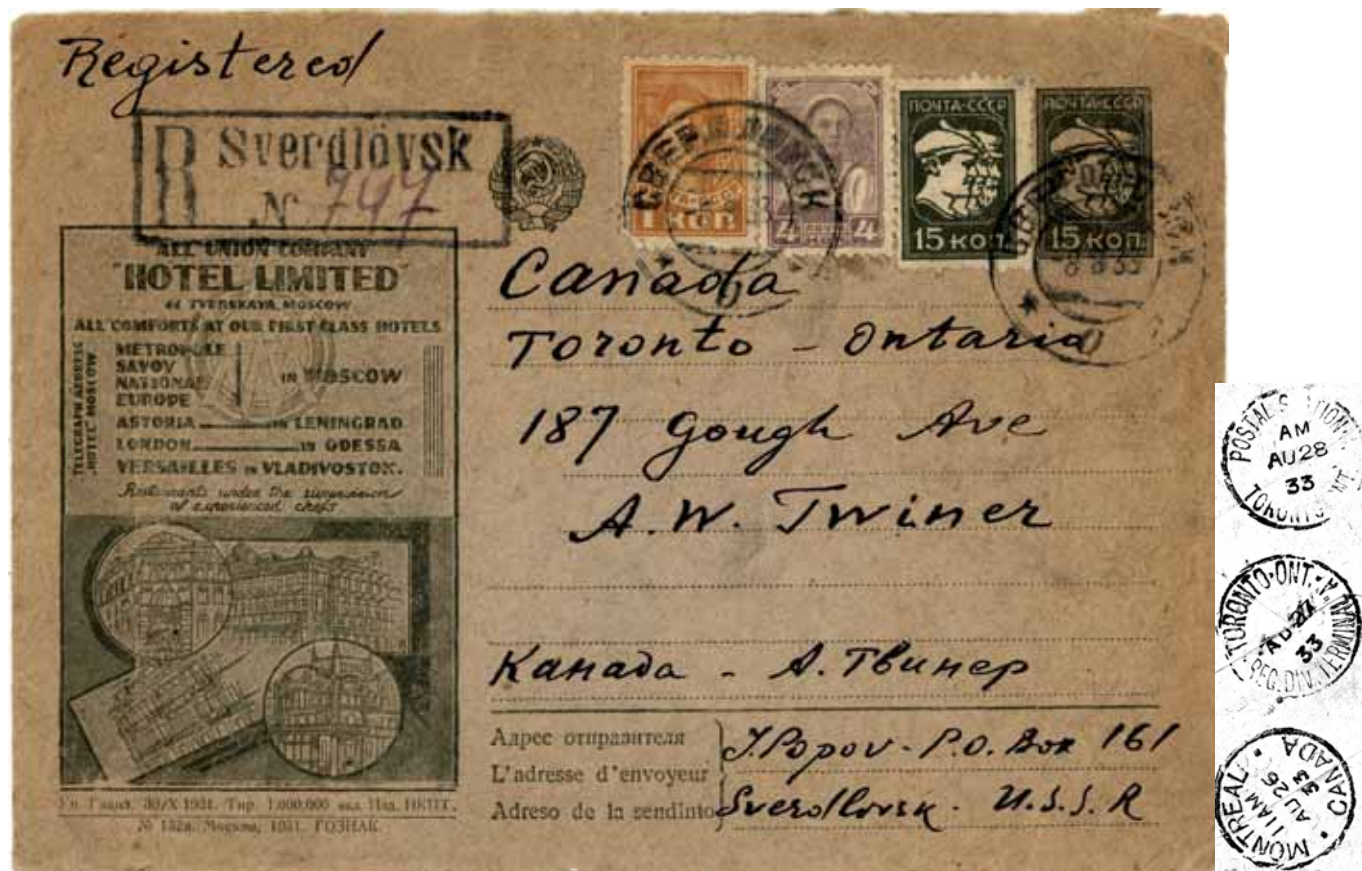 Registered
R Sverdlovsk
N 747
1 КОП
4 4
ПОЧТА-СССР
15 КОП.
ПОЧТА-СССР
15 КОП.
СВЕРДЛОВСК
8 8 33
ALL UNION COMPANY
"HOTEL LIMITED"
TVERSKAYA, MOSCOW
ALL COMFORTS AT OUR FIRST CLASS HOTELS
TELEGRAPH ADDRESS
"HOTEL" MOSCOW
METROPOLE
SAVOY
NATIONAL
EUROPE
IN MOSCOW
ASTORIA IN LENINGRAD
LONDON IN ODESSA
VERSAILLES IN VLADIVOSTOK.
Restaurants under the supervision
of experienced chefs
Canada
Toronto - Ontario
187 Gough Ave
A. W. Twiner
Канада - А. Твинер
Адрес отправителя
L'adresse d'envoyeur
Adreso de la sendinto
J. Popov - P.O. Box 161
Sverdlovsk - U.S.S.R
30/X 1931. Тир. 1.000.000
Москва, 1931. ГОЗНАК.
POSTAL STATION
AM
AU 28
33
TORONTO
TORONTO·ONT.
AU 27
33
REG. DIV. TERMINAL A
MONTREAL
11 AM
AU 26
33
CANADA